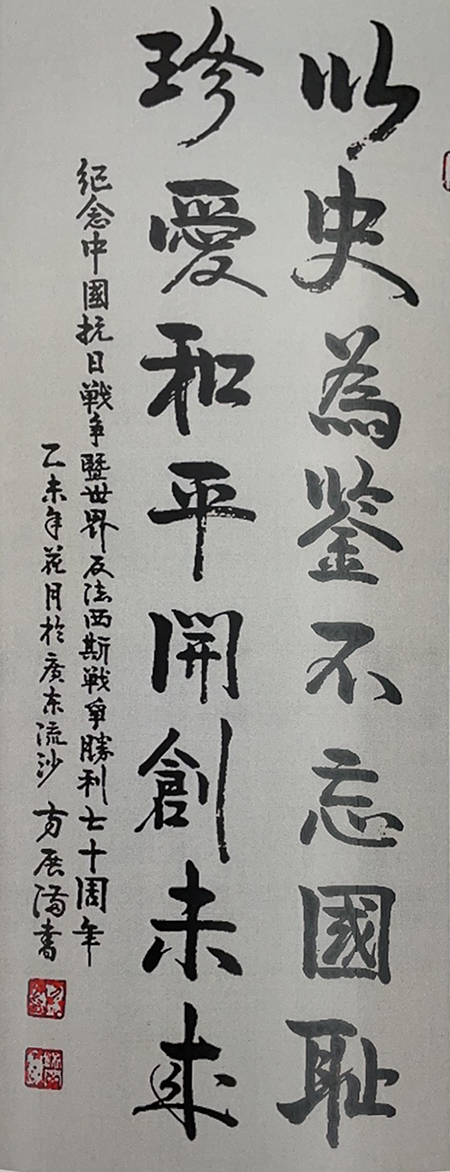 以史為鑒不忘國耻
珍愛和平開創未来
纪念中國抗日戰争暨世界反法西斯戰爭勝利七十周年
乙未年花月於廣东流沙 方展满書